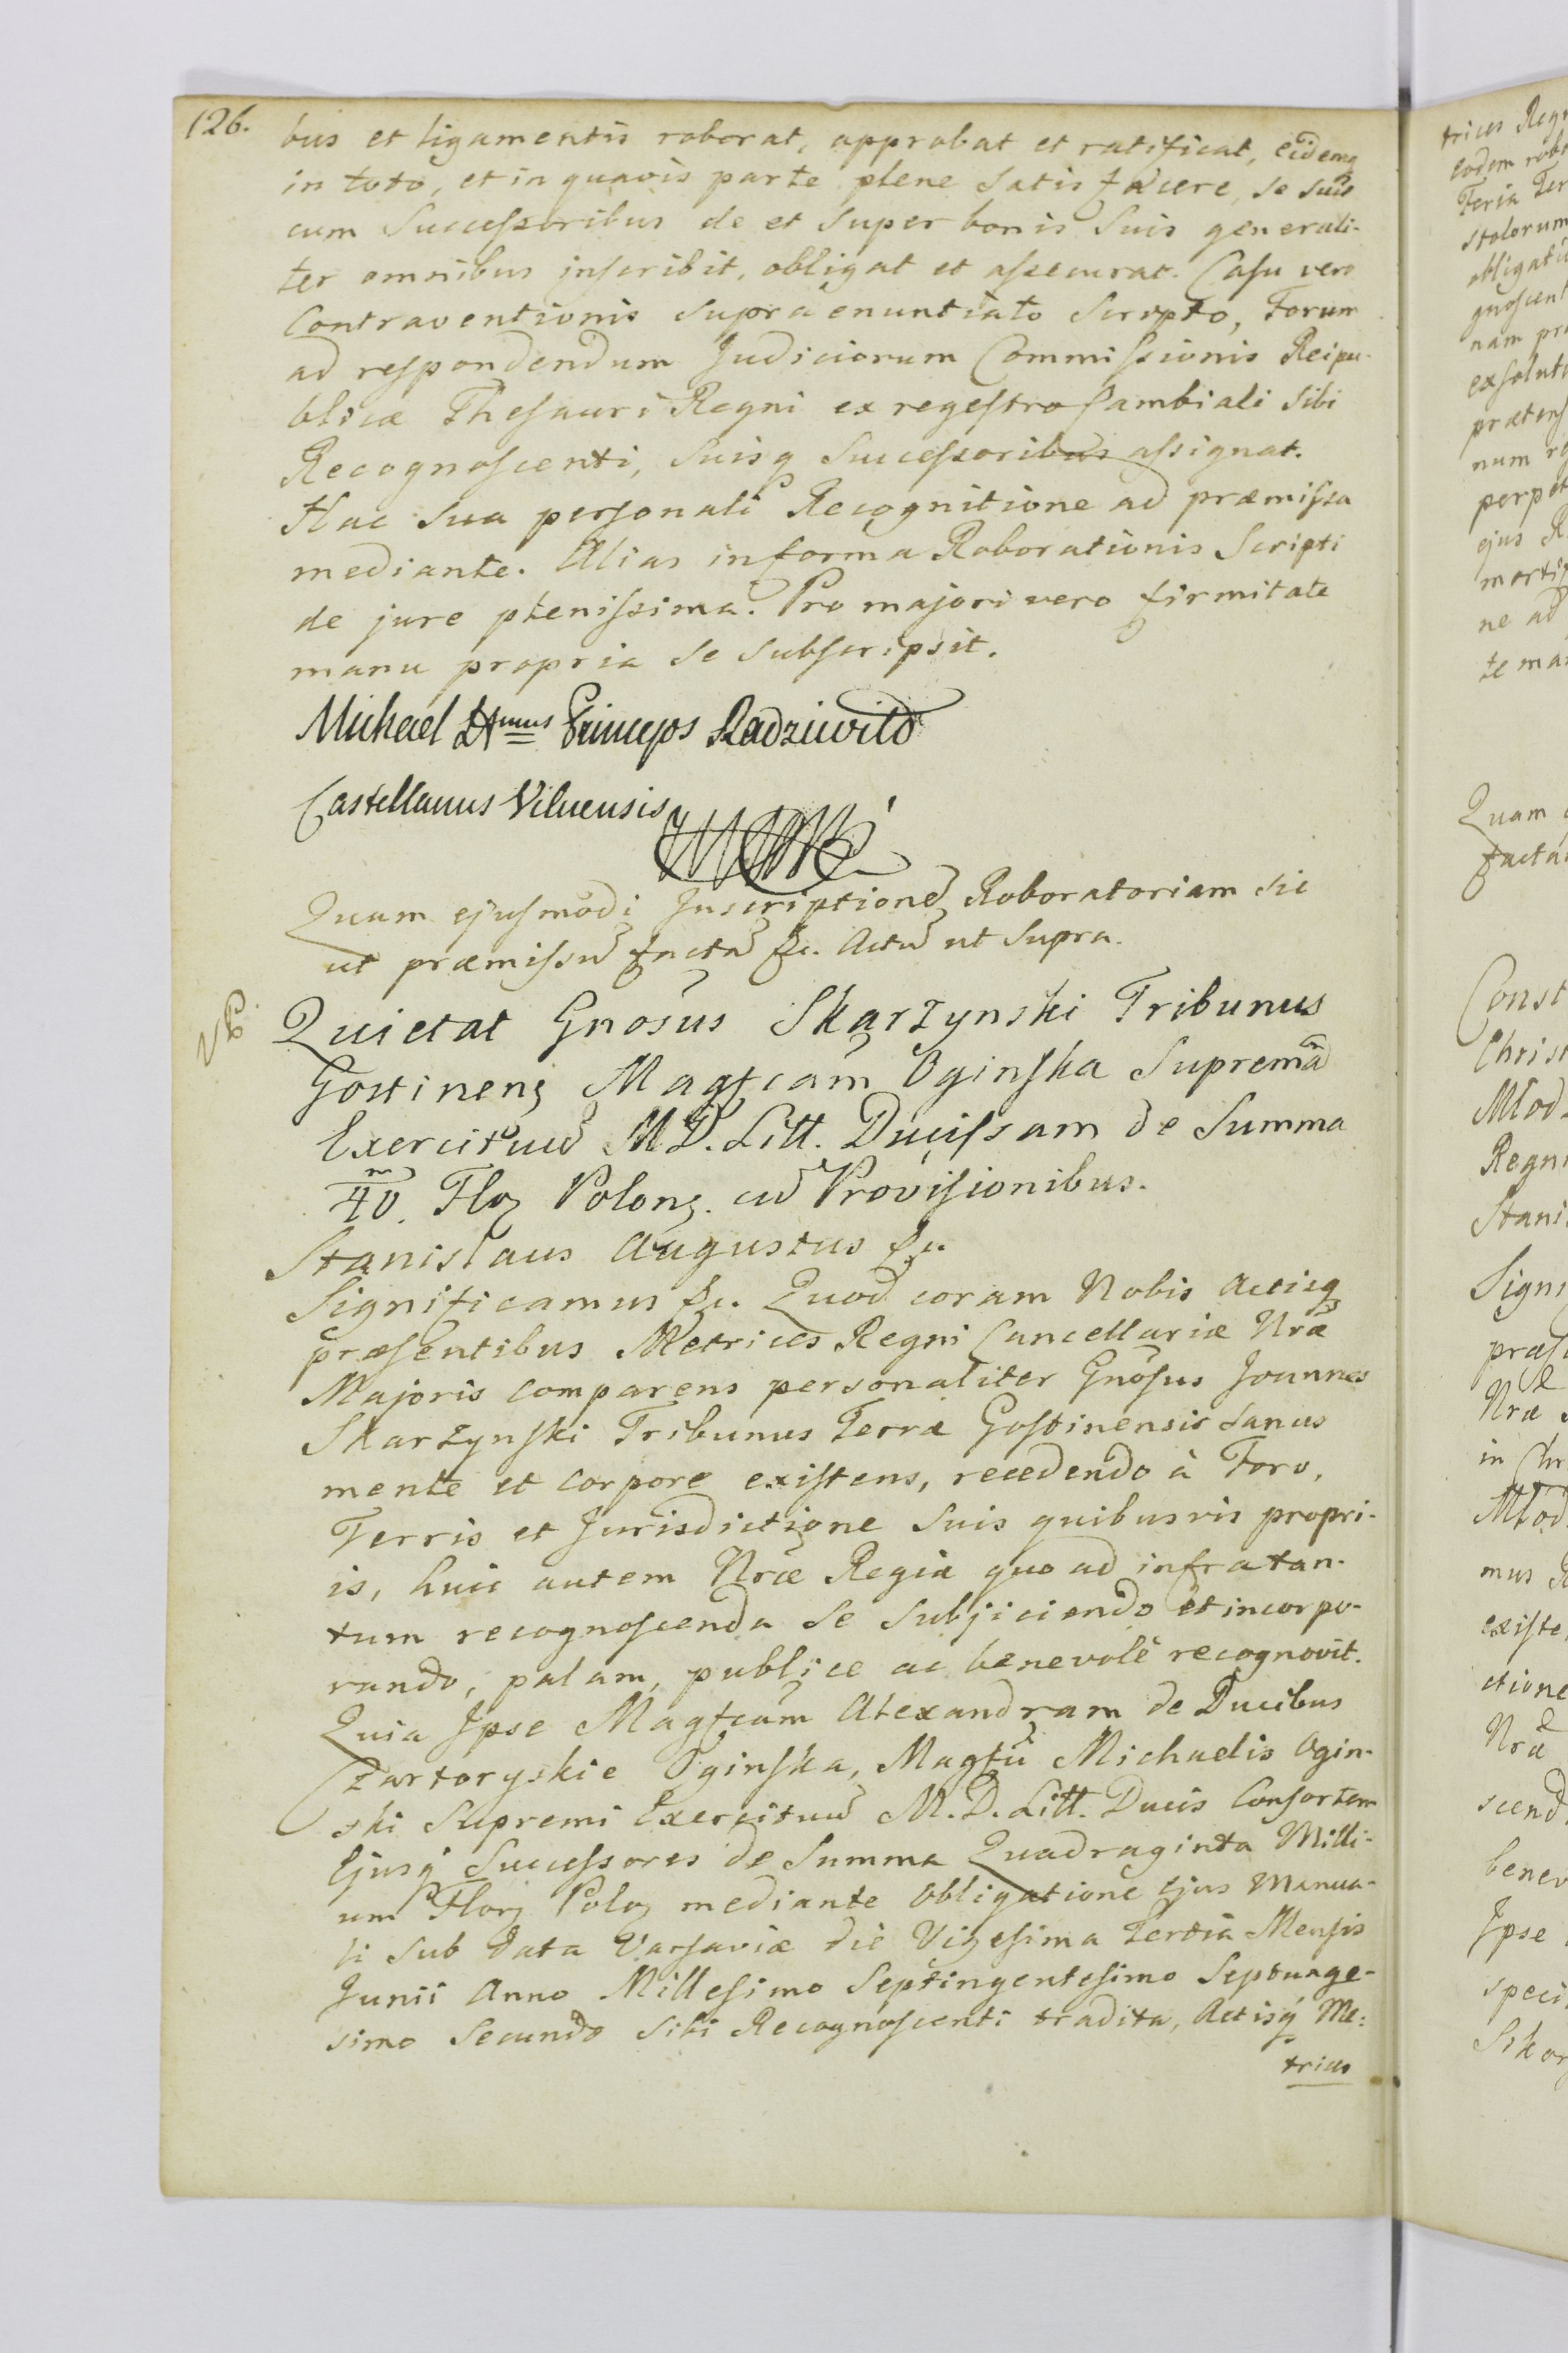 126.
bus et ligamentis roborat, approbat et ratificat, eidemq
in toto, et in quavis parte plene satisfacere, se suis
cum Successoribus de et super bonis suis generali-
ter omnibus inscribit, obligat et assecurat. Casu vero
Contraventionis supra enuntiato Scripto, Forum
ad respondendum Judiciorum Commissionis Reipu-
blicæ Thesauri Regni ex regestro Cambiali sibi
Recognoscenti, suisq Successoribus assignat.
Hac sua personali Recognitione ad præmissa
mediante. Alias in forma Roborationis Scripti
de jure plenissima. Pro majori vero firmitate
manu propria se subscripsit.
Michael Princeps Radziwiłł
Castellanus Vilnensis
Quam ejusmodi Inscriptione Roboratoriam sic
ut præmissu facta &c. Actu ut supra.
Quietat Gnosus Skarzynski Tribunus
Gostinens Magfcam Oginska Suprema
Exercituu M.D. Litt. Ducissam de Summa
m
40. Flo Polon. cu Provisionibus.
Stanislaus Augustus &c.
Significamus &c. Quod coram Nobis Actisq
præsentibus Metrices Regni Cancellariæ Nræ
Majoris comparens personaliter Gnosus Joannes
Skarzynski Tribunus Terræ Gostinensis sanus
mente et corpore existens, recedendo à Foro,
Terris et Jurisdictione suis quibusvis propri-
is, huic autem Nræ Regiæ quo ad infra tan-
tum recognoscenda se subjiciendo et incorpo-
rando, palam, publice ac benevolè recognovit.
Quia Ipse Magfcam Alexandram de Ducibus
Czartoryskie Oginska, Magfci Michaelis Ogin-
ski Supremi Exercituu M.D. Litt. Ducis Consortem
Ejusq Successores de Summa Quadraginta Milli-
um Flor Polo mediante Obligatione Ejus Manua-
li sub data Varsaviæ die Vigesima tertia Mensis
Junii Anno Millesimo Septingentesimo Septuage-
simo Secundo sibi Recognoscenti tradita, Actisq Me:
trices